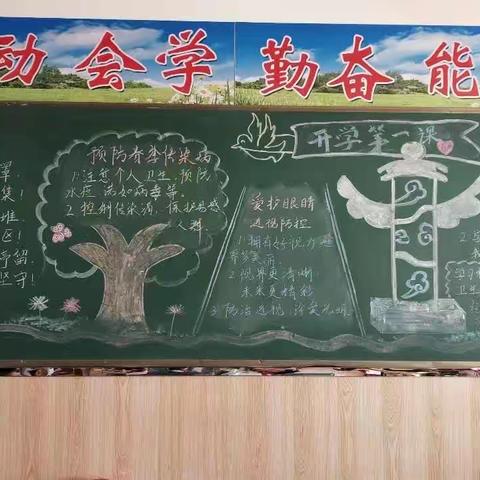 动 会 学 勤 奋 能
罩!
集!
堆
区!
停留
坚守!
预防春季传染病
1.注意个人卫生,预防
水痘 诺如病毒等
2.控制传染源,保护易感
人群
爱护眼睛
近视防控
1.拥有好视力
2.视界更清晰
未来更精彩
3.防治近视,
开学第一课
学习
卫生